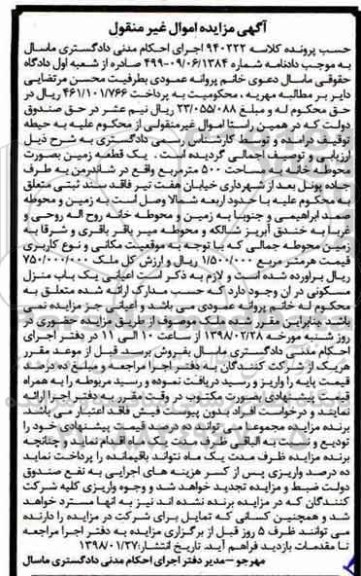 آگهی مزایده اموال غیر منقول
حسب پرونده کلاسه ۹۴۰۲۲۲ اجرای احکام مدنی دادگستری ماسال
به موجب دادنامه شماره ۴۹۹-۰۹/۰۶/۱۳۸۴ صادره از شعبه اول دادگاه
حقوقی ماسال دعوی خانم پروانه عمودی بطرفیت محسن مرتضایی
دایر بر مطالبه مهریه ، محکومیت به پرداخت ۴۶۱/۱۰۱/۷۶۶ ریال در
حق محکوم له و مبلغ ۲۳/۰۵۵/۰۸۸ ریال نیم عشر در حق صندوق
دولت که در همین راستا اموال غیرمنقولی از محکوم علیه به حیطه
توقیف درآمده و توسط کارشناس رسمی دادگستری به شرح ذیل
ارزیابی و توصیف اجمالی گردیده است . یک قطعه زمین بصورت
محوطه خانه با مساحت ۵۰۰ مترمربع واقع در شاندرمن به طرف
جاده پونل بعد از شهرداری خیابان هفت تیر فاقد سند ثبتی متعلق
به محکوم علیه با حدود اربعه شمالا وصل است به زمین و محوطه
صمد ابراهیمی و جنوبا به زمین و محوطه خانه روح اله روحی و
غربا به خندق آبریز شالکه و محوطه میر باقر باقری و شرقا به
زمین محوطه جمالی که با توجه به موقعیت مکانی و نوع کاربری
قیمت هرمتر مربع ۱/۵۰۰/۰۰۰ ریال و ارزش کل ملک ۷۵۰/۰۰۰/۰۰۰
ریال برآورده شده است و لازم به ذکر است اعیانی یک باب منزل
مسکونی در آن وجود دارد که حسب مدارک ارائه شده متعلق به
محکوم له خانم پروانه عمودی می باشد و اعیانی جز مزایده نمی
باشد .بنابراین مقرر شده ملک موصوف از طریق مزایده حضوری در
روز شنبه مورخه ۱۳۹۸/۰۲/۲۸ از ساعت ۱۰ الی ۱۱ در دفتر اجرای
احکام مدنی دادگستری ماسال بفروش برسد. قبل از موعد مقرر
هریک از شرکت کنندگان به دفتر اجرا مراجعه و مبلغ ده درصد
قیمت پایه را واریز و رسید دریافت نموده و رسید مربوطه را به همراه
قیمت پیشنهادی بصورت مکتوب در وقت مقرر به دفتر اجرا ارائه
نمایند و درخواست افراد بدون پیوست فیش فاقد اعتبار می باشد
برنده مزایده مجموعا می تواند ده درصد قیمت پیشنهادی خود را
تودیع و نسبت به الباقی ظرف مدت یک ماه اقدام نماید . چنانچه
برنده مزایده ظرف مدت یک ماه نتواند باقیمانده را پرداخت نماید
ده درصد واریزی پس از کسر هزینه های اجرایی به نفع صندوق
دولت ضبط و مزایده تجدید خواهد شد و وجوه واریزی کلیه شرکت
کنندگان که در مزایده برنده نشده اند نیز به آنها مسترد خواهد
شد و همچنین کسانی که تمایل برای شرکت در مزایده را دارند
می توانند ظرف ۵ روز قبل از برگزاری مزایده به دفتر اجرا مراجعه
تا مقدمات بازدید فراهم آید. تاریخ انتشار:۱۳۹۸/۰۱/۲۷
مهرجو – مدیر دفتر اجرای احکام مدنی دادگستری ماسال